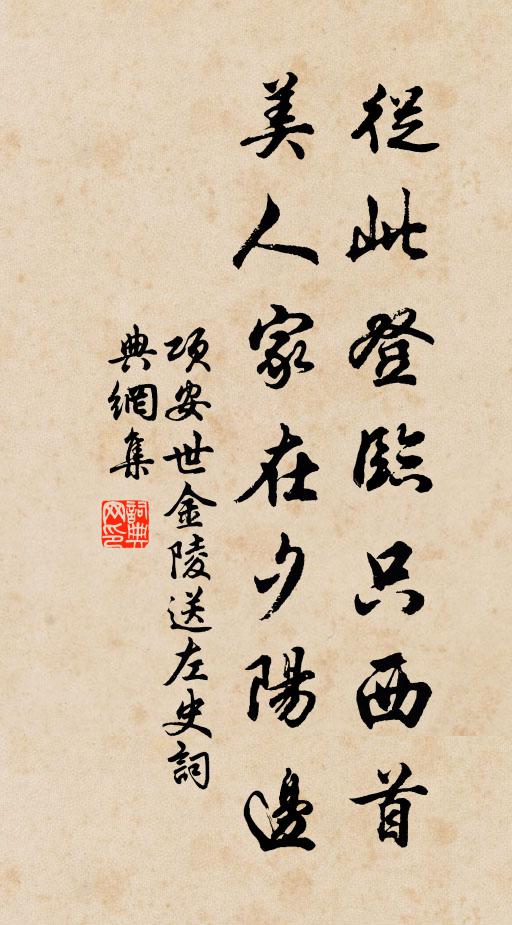 從此登臨只西首
美人家在夕陽邊
項安世金陵送左史詞
典網集
詞典網印